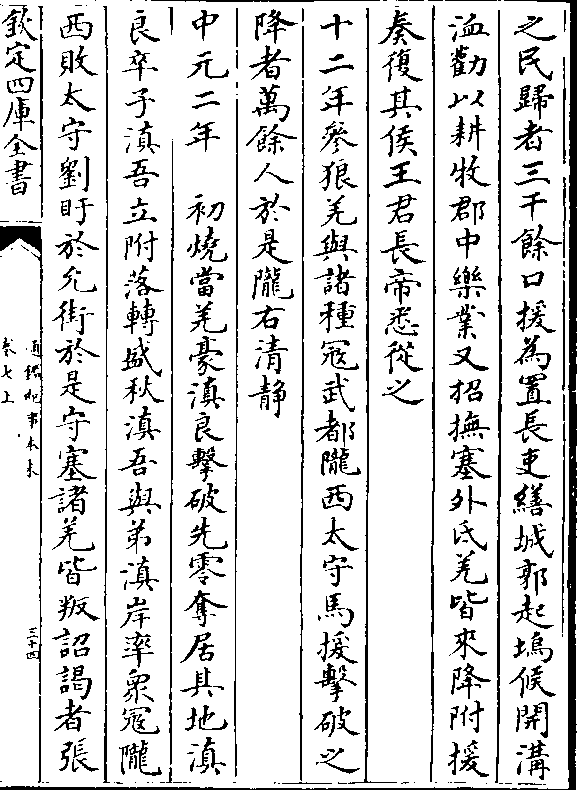 之民歸者三千餘口援為置長吏繕城郭起塢候開溝
洫勸以耕牧郡中樂業又招撫塞外氐羌皆來降附援
奏復其侯王君長帝悉從之
十二年參狼羌與諸種寇武都隴西太守馬援擊破之
降者萬餘人於是隴右清静
中元二年　初燒當羌豪滇良擊破先零奪居其地滇
良卒子滇吾立附落轉盛秋滇吾與弟滇岸率衆寇隴
西敗太守劉盱於允街於是守塞諸羌皆叛詔謁者張
欽定四庫全書
通鑑紀事本末
卷七上
三十四